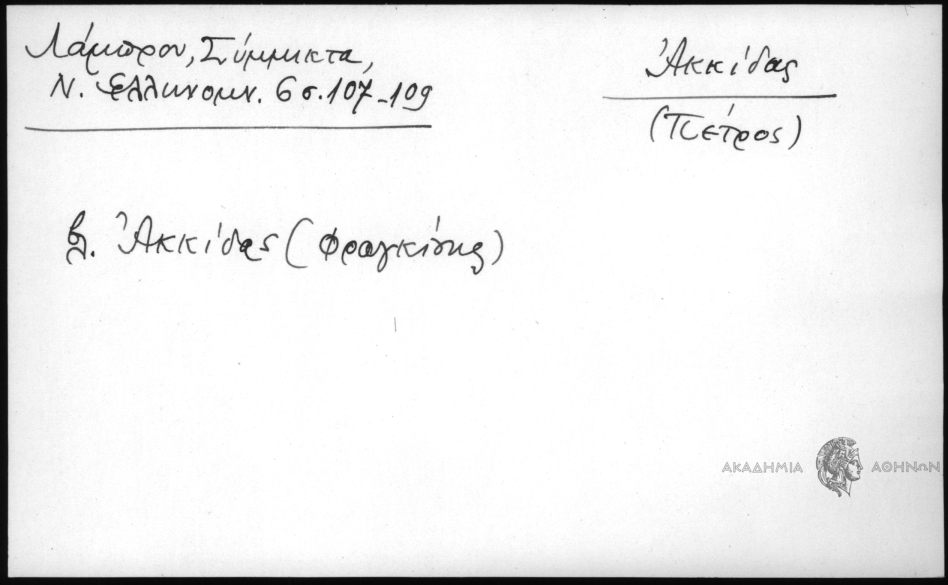 Λάμπρου, Σύμμικτα,
Ν. Ἑλληνομν. 6 σ. 107-109
Ἀκκίδας
(Πέτρος)
β. Ἀκκίδας (Φραγκίσκος)
ΑΚΑΔΗΜΙΑ ΑΘΗΝΩΝ